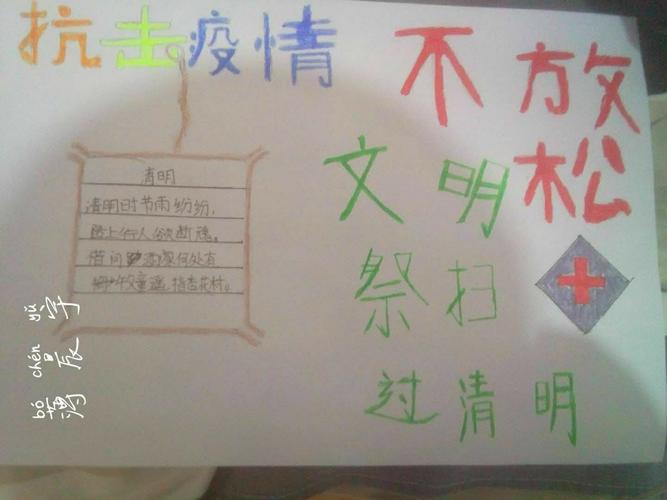 抗击疫情
不放松
文明
祭扫
过清明
清明
清明时节雨纷纷,
路上行人欲断魂。
借问酒家何处有
牧童遥指杏花村。
bó chén yǔ
薄辰宇